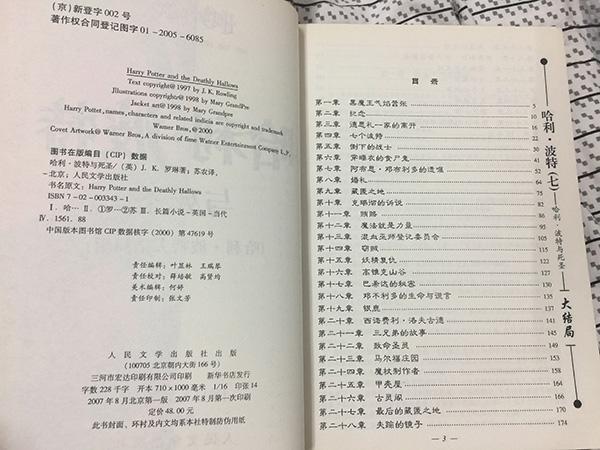 (京)新登字 002 号
著作权合同登记图字 01-2005-6085
Harry Potter and the Deathly Hallows
Text copyright@1997 by J. K. Rowling
Jllustrations copyright@1998 by Mary GrandPre
Jacket art@1998 by Mary Grandpre
Harry Potter,names,characters and related indicia are copyright and trademark
Warner Bros,@2000
Covet Artwork@Warner Bros,A division of fime Watner Entertainment Company L.P.
图书在版编目(CIP)数据
哈利·波特与死圣/(英)J. K. 罗琳著;苏农译,
-北京;人民文学出版社
书名原文:Harry Potter and the Deathly Hallows
ISBN 7-02-003343-1
I. 哈… II. ①罗…②苏 III. 长篇小说-英国-当代
IV. 1561. 88
中国版本图书馆 CIP 数据核字(2000)第 47619 号
责任编辑:叶显林 王瑞琴
责任校对:薛培敏 高贤均
美术编辑:何婷
责任印制:张文芳
人民文学出版社出版
(100705 北京朝内大街 166 号)
三河市宏达印刷有限公司印刷 新华书店发行
字数 228 千字 开本 710×1000 毫米 1/16 印张 14
2007 年 8 月北京第一版 2007 年 8 月第一次印刷
定价 48.00 元
此书封面、环村及内文均系本社特制防伪用纸
目 录
第一章 黑魔王气焰嚣张 5
第二章 纪念 10
第三章 德思礼一家的离开 16
第四章 七个波特 22
第五章 倒下的战士 30
第六章 穿睡衣的食尸鬼 42
第七章 阿不思·邓布利多的遗嘱 52
第八章 婚礼 64
第九章 藏匿之地 75
第十章 克瑞彻的诉说 82
第十一章 贿赂 86
第十二章 魔法就是力量 95
第十三章 混血巫师登记委员会 105
第十四章 窃贼 113
第十五章 妖精复仇 118
第十六章 高锥克山谷 127
第十七章 巴希达的秘密 132
第十八章 邓不利多的生命与谎言 135
第十九章 银鹿 137
第二十章 西诺费利·洛夫古德 141
第二十一章 三兄弟的故事 145
第二十二章 致命圣员 149
第二十三章 马尔福庄园 153
第二十四章 魔杖制作者 158
第二十五章 甲壳屋 161
第二十六章 古灵阁 164
第二十七章 最后的藏匿之地 170
第二十八章 失踪的镜子 174
-3-
哈利·波特(七)
哈利·波特与死圣
大结局